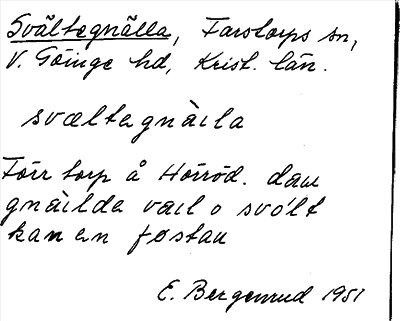 Svältegnälla, Farstorps sn,
V. Göinge hd, Krist. län.
svæltegnàila
Förr torp å Hörröd. dau
gnàilde vail o svólt
kan en føstau
E. Bergenrud 1951